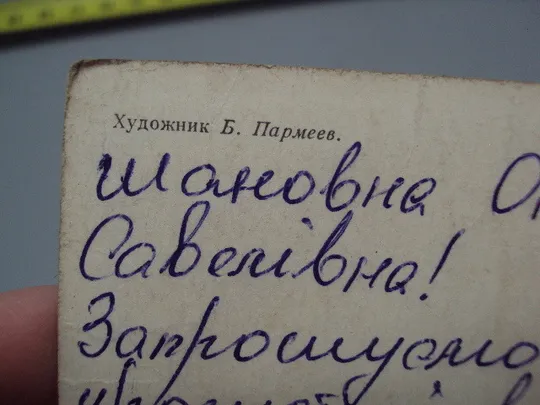 Художник Б. Пармеев.
Шановна
Савелівна!
Запрошуємо